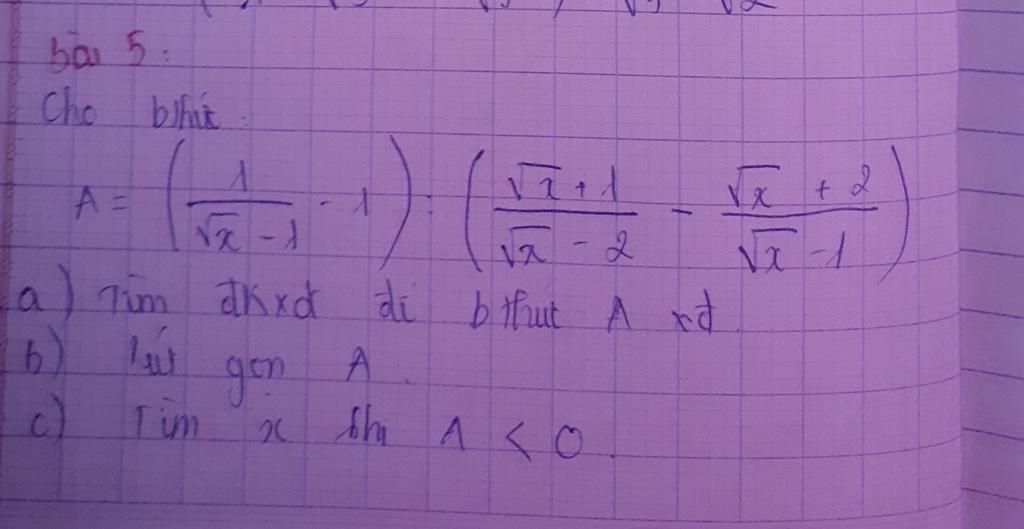 bài 5:
Cho bthức:
A = (1/(√x - 1) - 1) : ((√x + 1)/(√x - 2) - (√x + 2)/(√x - 1))
a) Tìm đkxđ để bthức A xđ
b) rút gọn A.
c) Tìm x khi A < 0